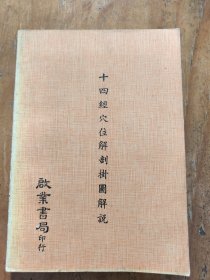 十四經穴位解剖掛圖解説
啟業書局印行